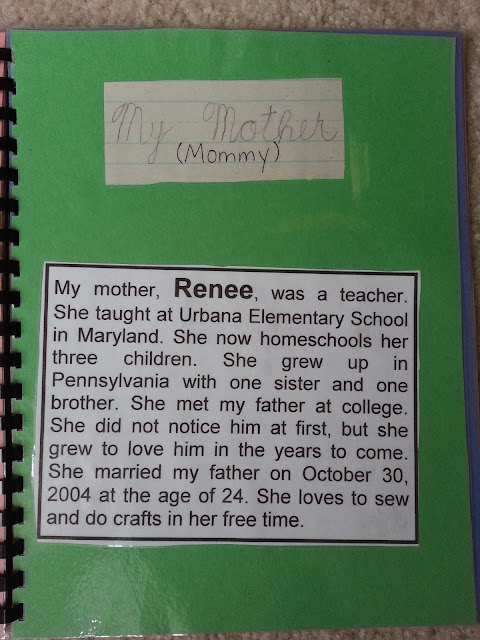 My Mother
(Mommy)
My mother, Renee, was a teacher.
She taught at Urbana Elementary School
in Maryland. She now homeschools her
three children. She grew up in
Pennsylvania with one sister and one
brother. She met my father at college.
She did not notice him at first, but she
grew to love him in the years to come.
She married my father on October 30,
2004 at the age of 24. She loves to sew
and do crafts in her free time.